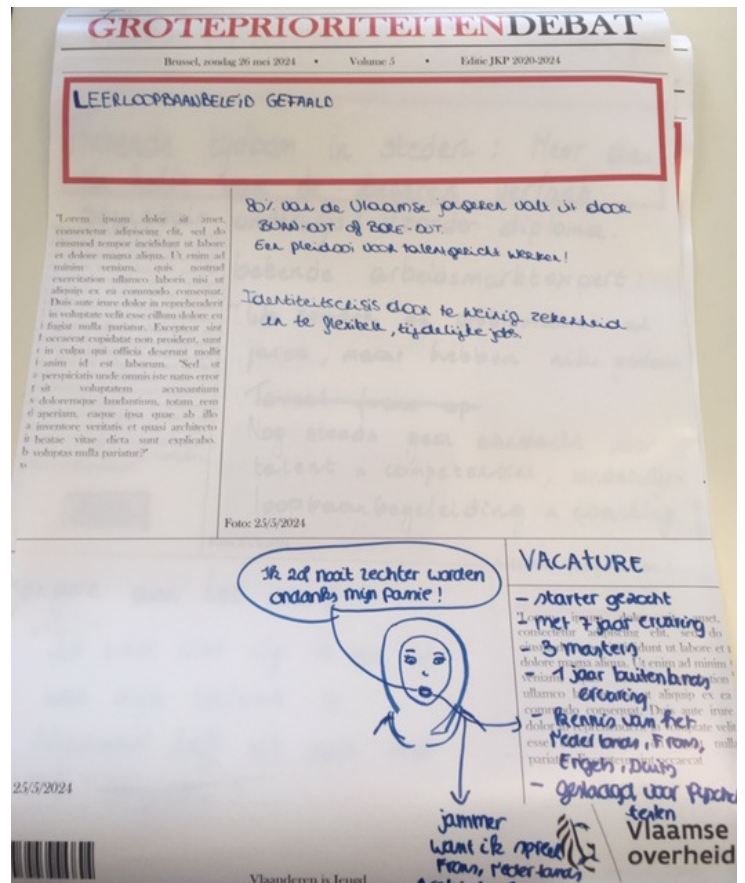 GROTEPRIORITEITENDEBAT
Brussel, zondag 26 mei 2024 • Volume 5 • Editie JKP 2020-2024
LEERLOOPBAANBELEID GEFAALD
"Lorem ipsum dolor sit amet,
consectetur adipiscing elit, sed do
eiusmod tempor incididunt ut labore
et dolore magna aliqua. Ut enim ad
minim veniam, quis nostrud
exercitation ullamco laboris nisi ut
aliquip ex ea commodo consequat.
Duis aute irure dolor in reprehenderit
in voluptate velit esse cillum dolore eu
fugiat nulla pariatur. Excepteur sint
occaecat cupidatat non proident, sunt
in culpa qui officia deserunt mollit
anim id est laborum. "Sed ut
perspiciatis unde omnis iste natus error
sit voluptatem accusantium
doloremque laudantium, totam rem
aperiam, eaque ipsa quae ab illo
inventore veritatis et quasi architecto
beatae vitae dicta sunt explicabo.
voluptas nulla pariatur?"
80% van de Vlaamse jongeren valt uit door
BURN-OUT of BORE-OUT
Een pleidooi voor talentgericht werken!
Identiteitscrisis door te weinig zekerheid
en te flexibele, tijdelijke jobs.
Foto: 25/5/2024
Ik zal nooit rechter worden
ondanks mijn passie!
jammer
want ik spreek
Frans, Nederlands
25/5/2024
VACATURE
- starter gezocht
- met 7 jaar ervaring
- 3 masters
- 1 jaar buitenlands
ervaring
- kennis van het
Nederlands, Frans,
Engels, Duits
- geslaagd voor
testen
Vlaamse
overheid
Vlaanderen is Jeugd